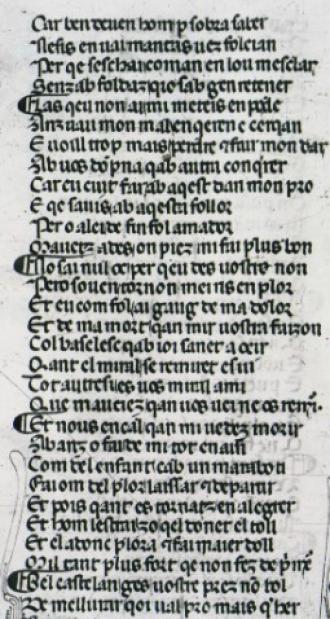 Car ben deuen hom p sobra saber
Nesis en uai mantas uez foleian
Per qe seschai coman en lou mesclar
Senz ab foldaz qio sab gen retener
Las qeu non ai mi meteis en poder
Anz uau mon mal enqeren e cercan
E uoill trop mais perdre qfar mon dan
Ab uos dõpna qab autra conqrer
Car eu cuit far ab aqest dan mon pro
E qe sauis ab aqesta follor
Per o a lei de fin fol amador
Mauetz ades on piez mi fai plus bon
No sai nul oc per qeu des uostre non
Pero souen tornon mei ris en plor
Et eu com fol ai gaug de ma dolor
Et de ma mort qan mir uostra faizon
Col baselesc qab ioi sanet aucir
Qant el mirail se remiret e sui
Tot autresi es uos mirail a mi
Que mauciez qan uos uei ne os remir.
Et nous en cal qan mi uedez morir
Abanz o faitz de mi tot enaisi
Com del enfant cab un maraboti
Fai om del plor laissar q departir
Et pois qant es tornatz en alegrer
Et hom lestrai zo qel doner el toll
Et el adonc plora q fai maier doll
Mil tant plus fort qe non fez de pmer
Bel castelan ges uostre prez no tol
De mellurar qoi ual pro mais qher